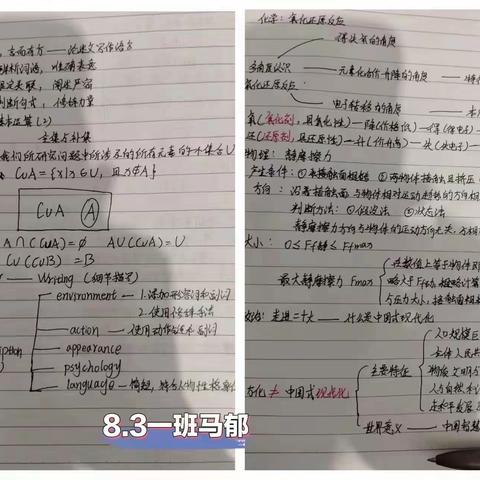 言而有方——论述文写作语言
辨析词语，准确表意
关联，阐述严密
判断句式，传播力量
基本运算(2)
全集与补集
我们所研究问题中所涉及的所有元素的集合U
CuA={x|x∈U，且x∉A}
CuA A
A∩(CuA)=∅ A∪(CuA)=U
Cu(CuB)=B
Writing(细节描写)
environment — 1.添加形容词和副词
2.使用修辞手法
action — 使用动作链和副词
appearance
psychology
language —简短，符合人物性格身份
8.3一班马郁
化学：氧化还原反应
得失氧的角度
多角度认识
元素化合价升降的角度
氧化还原反应
电子转移的角度
氧(氧化剂，具氧化性)—降(价格低)—得(得电子)
还(还原剂，具还原性)—升(价升高)—失(失电子)
物理：静摩擦力
产生条件：①接触面粗糙 ②两物体接触且挤压
方向：沿着接触面与物体相对运动趋势的方向相
判断方法：①假设法 ②状态法
静摩擦力方向与物体的运动方向无关，
大小：0≤F静≤Ffmax
在数值上等于物体
最大静摩擦力 Fmax
略大于
与压力大小，接触面粗糙
政治：走进二十大——什么是中国式现代化
人口规模巨
全体人民共
主要特征
物质文明
人与自然和
走和平发展
方化≠中国式现代化
世界意义——中国智慧